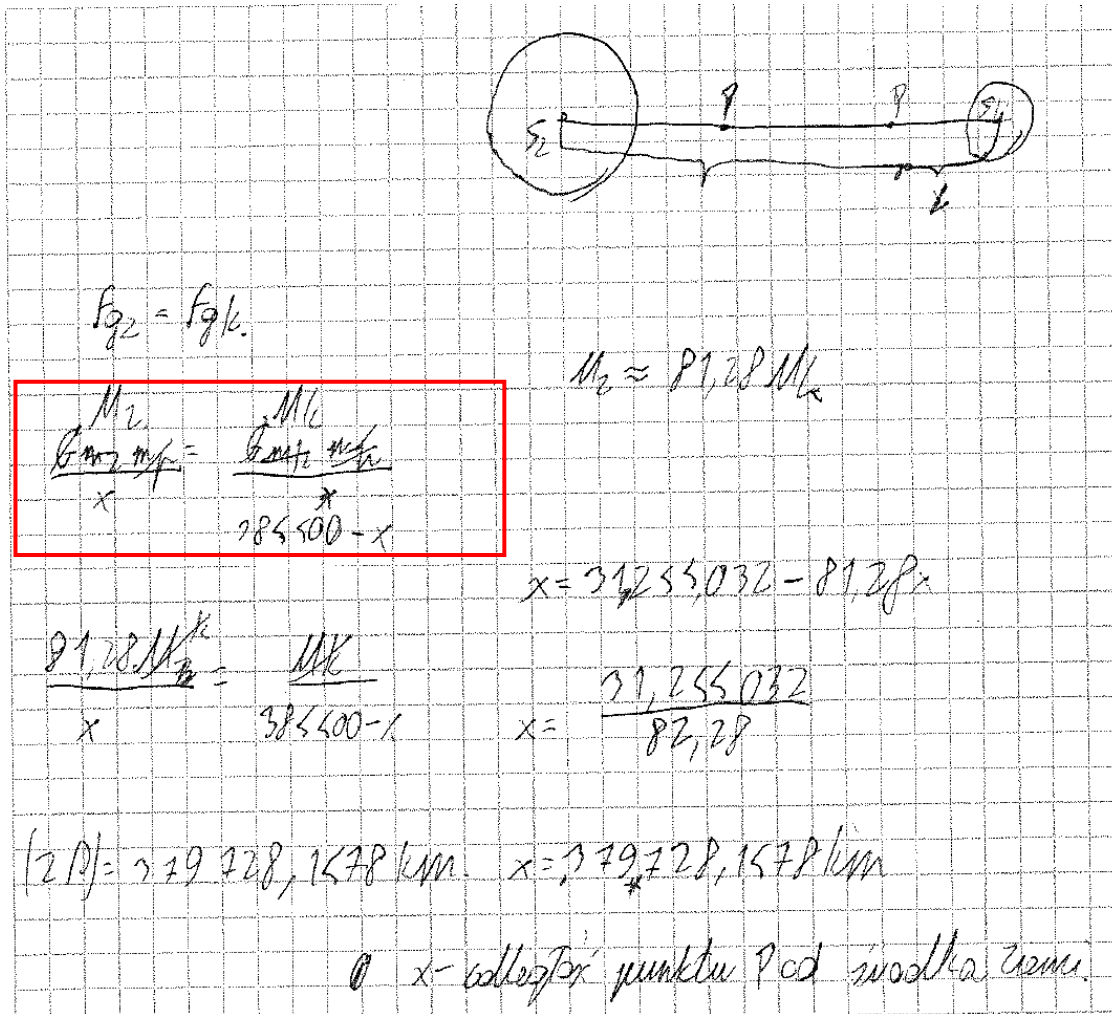 P P
S_Z
x
F_gz = F_gk.
M_Z ≈ 81,28 M_k
M_Z M_k
=
x x
384400 - x
x = 31,244,032 - 81,28x
81,28 M_k = M_k
x 384400 - x
x = 31,244032 / 82,28
|ZP| = 379 728,1478 km. x = 379,728,1478 km
x - odległość punktu P od środka Ziemi.